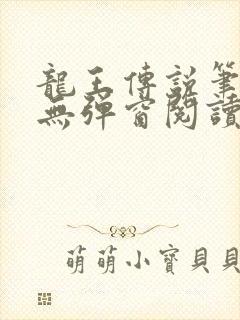 龍王傳說筆
無彈窗閱讀
萌萌小寶貝貝